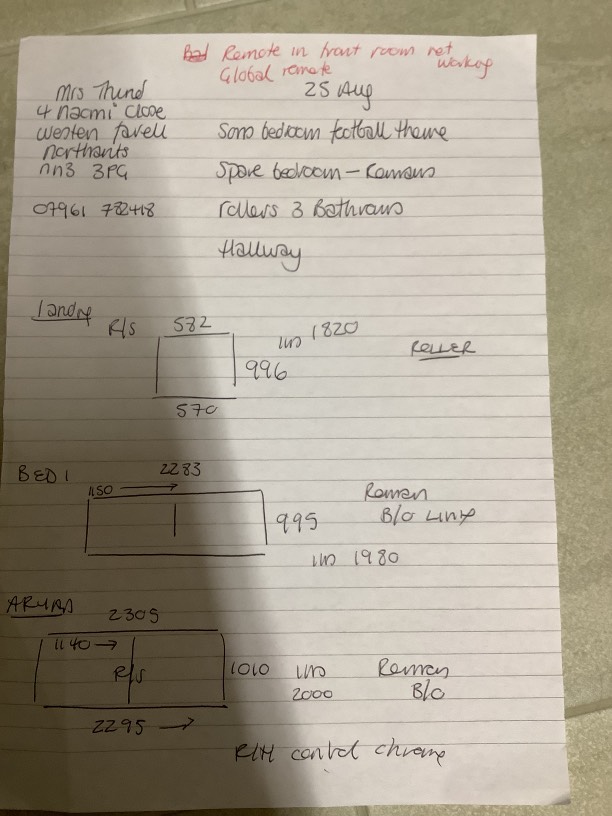 Remote in front room not working
Global remote
25 Aug
Mrs Thind
4 Naomi Close
Westen favell
Northants
nn3 3PG
07961 782418
Sons bedroom football theme
Spare bedroom - Romans
rollers 3 Bathrooms
Hallway
R/S 582
1820
996
570
ROLLER
BED 1
2283
1150
995
Roman
B/O
1980
2305
1140
R/S
1010
2000
Roman
B/O
2295
R/H control chrome